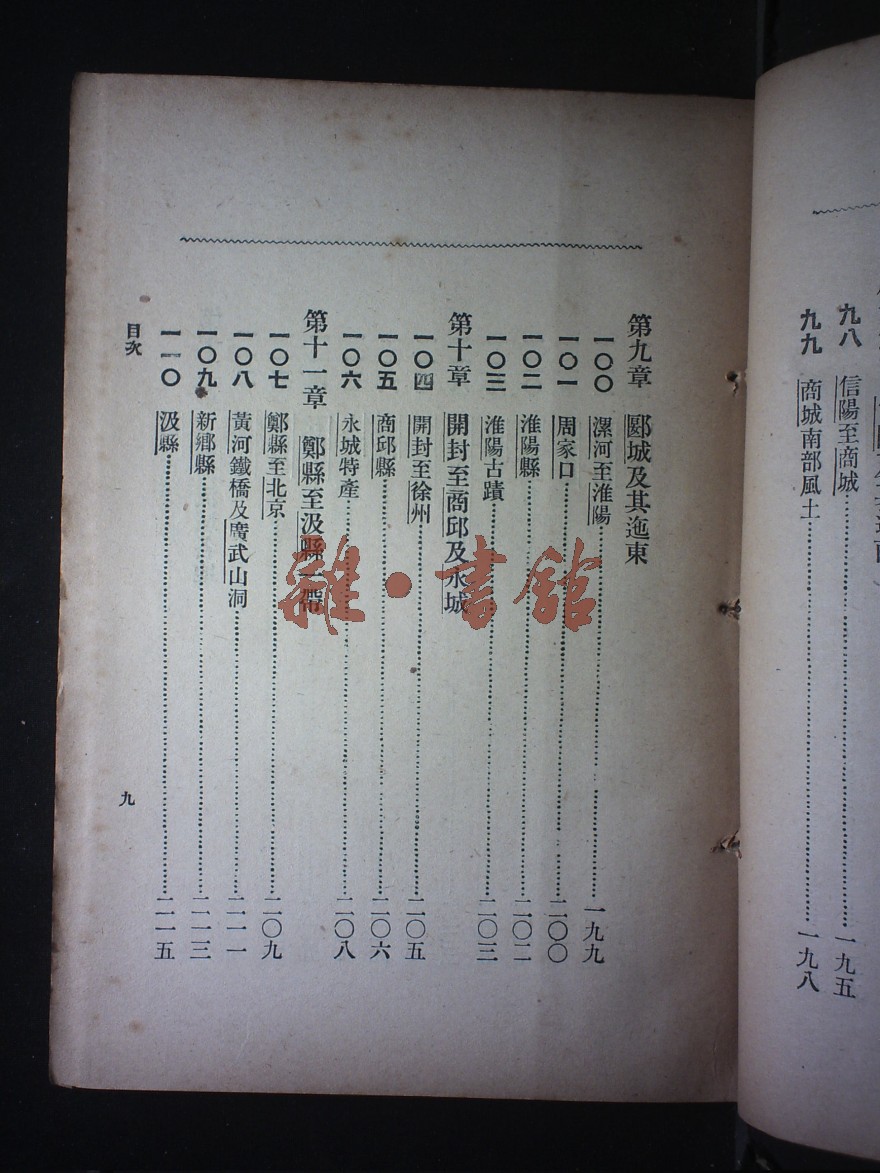 九八 信陽至商城 一九五
九九 商城南部風土 一九八
第九章 郾城及其迤東
一〇〇 漯河至淮陽 一九九
一〇一 周家口 二〇〇
一〇二 淮陽縣 二〇二
一〇三 淮陽古蹟 二〇三
第十章 開封至商邱及永城
一〇四 開封至徐州 二〇五
一〇五 商邱縣 二〇六
一〇六 永城特產 二〇八
第十一章 鄭縣至汲縣一帶
一〇七 鄭縣至北京 二〇九
一〇八 黃河鐵橋及廣武山洞 二一一
一〇九 新鄉縣 二一三
一一〇 汲縣 二一五
目次
九
雜·書館